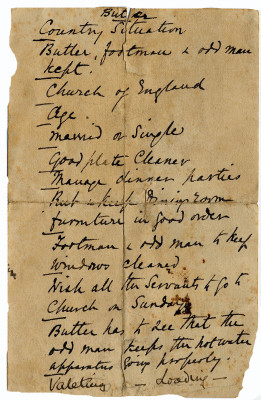 Butler
Country Situation
Butler, footman & odd man
kept.
Church of England
Age.
Married or Single
Good plate Cleaner
Manage dinner parties
But & keep Dining room
furniture in good order
Footman & odd man to keep
Windows cleaned
Wish all the Servants to go to
Church on Sunday
Butler has to see that the
odd man keeps the hot water
apparatus going properly.
Valeting — Loading —